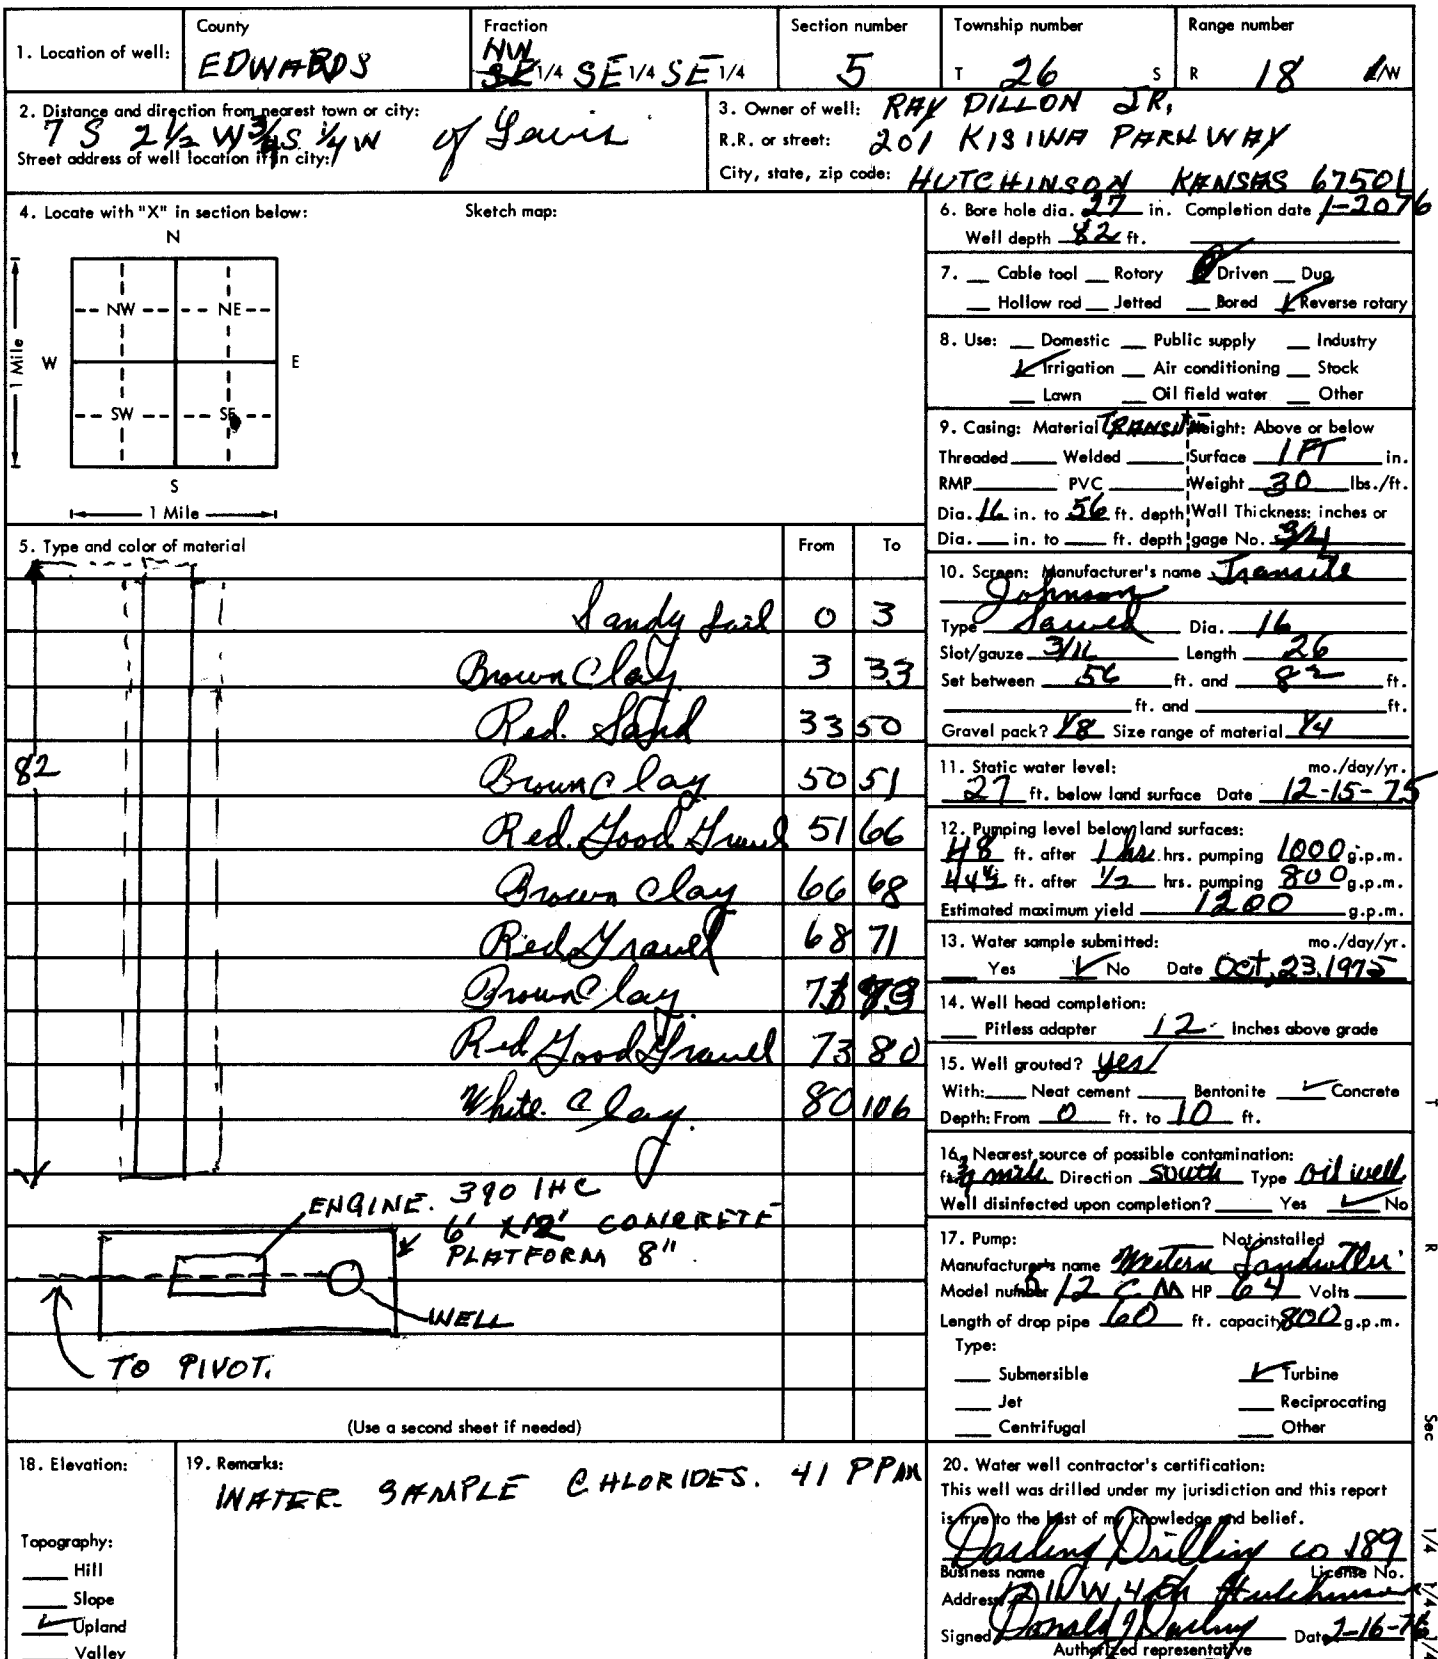 1. Location of well:
County
EDWARDS
Fraction
NW
SE 1/4 SE 1/4 SE 1/4
Section number
5
Township number
T 26 S
Range number
R 18 E/W
2. Distance and direction from nearest town or city:
7 S 2 1/2 W 3/4 S 1/4 W of Lewis
Street address of well location if in city:
3. Owner of well: RAY DILLON JR.
R.R. or street: 201 KISIWA PARKWAY
City, state, zip code: HUTCHINSON KANSAS 67501
4. Locate with "X" in section below:
Sketch map:
N
NW NE
W E
1 Mile
SW SE
S
1 Mile
6. Bore hole dia. 27 in. Completion date 1-2076
Well depth 82 ft.
7. Cable tool Rotory Driven Dug
Hollow rod Jetted Bored Reverse rotary
8. Use: Domestic Public supply Industry
Irrigation Air conditioning Stock
Lawn Oil field water Other
9. Casing: Material TRANSITE Height: Above or below
Threaded Welded Surface 1 FT in.
RMP PVC Weight 30 lbs./ft.
Dia. 16 in. to 56 ft. depth Wall Thickness: inches or
Dia. in. to ft. depth gage No. 3/4
5. Type and color of material
From To
Sandy Soil 0 3
Brown Clay 3 33
Red. Sand 33 50
Brown Clay 50 51
Red. Good Gravel 51 66
Brown Clay 66 68
Red Gravel 68 71
Brown Clay 71 73
Red Good Gravel 73 80
White Clay. 80 106
82
ENGINE. 390 IHC
6' X 12' CONCRETE
PLATFORM 8"
WELL
TO PIVOT.
(Use a second sheet if needed)
10. Screen: Manufacturer's name Transite
Johnson
Type Sawed Dia. 16
Slot/gauze 3/16 Length 26
Set between 56 ft. and 82 ft.
ft. and ft.
Gravel pack? 1/8 Size range of material 1/4
11. Static water level: mo./day/yr.
27 ft. below land surface Date 12-15-75
12. Pumping level below land surfaces:
48 ft. after 1 hr. hrs. pumping 1000 g.p.m.
44 1/2 ft. after 1/2 hrs. pumping 800 g.p.m.
Estimated maximum yield 1200 g.p.m.
13. Water sample submitted: mo./day/yr.
Yes No Date Oct, 23, 1975
14. Well head completion:
Pitless adapter 12 Inches above grade
15. Well grouted? yes
With: Neat cement Bentonite Concrete
Depth: From 0 ft. to 10 ft.
16. Nearest source of possible contamination:
ft. mile Direction south Type oil well
Well disinfected upon completion? Yes No
17. Pump: Not installed
Manufacturer's name Western Landroller
Model number 12 C M HP 64 Volts
Length of drop pipe 60 ft. capacity 800 g.p.m.
Type:
Submersible Turbine
Jet Reciprocating
Centrifugal Other
18. Elevation:
Topography:
Hill
Slope
Upland
Valley
19. Remarks:
WATER SAMPLE CHLORIDES. 41 PPM
20. Water well contractor's certification:
This well was drilled under my jurisdiction and this report
is true to the best of my knowledge and belief.
Darling Drilling co 189
Business name License No.
Address W 4th Hutchinson
Signed Donald J Darling Date 2-16-76
Authorized representative
T
R
Sec
1/4 1/4 1/4